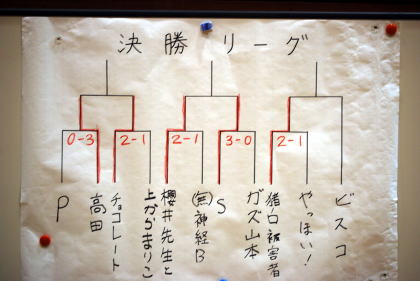 決勝リーグ
0-3
2-1
2-1
3-0
2-1
P
高田
チョコレート
櫻井先生と
上からまりこ
㊄神経B
S
ガズ山本
猪白被害者
やっほい!
ビスコ